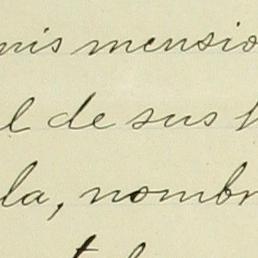 mis mensio
l de sus
la, nombr